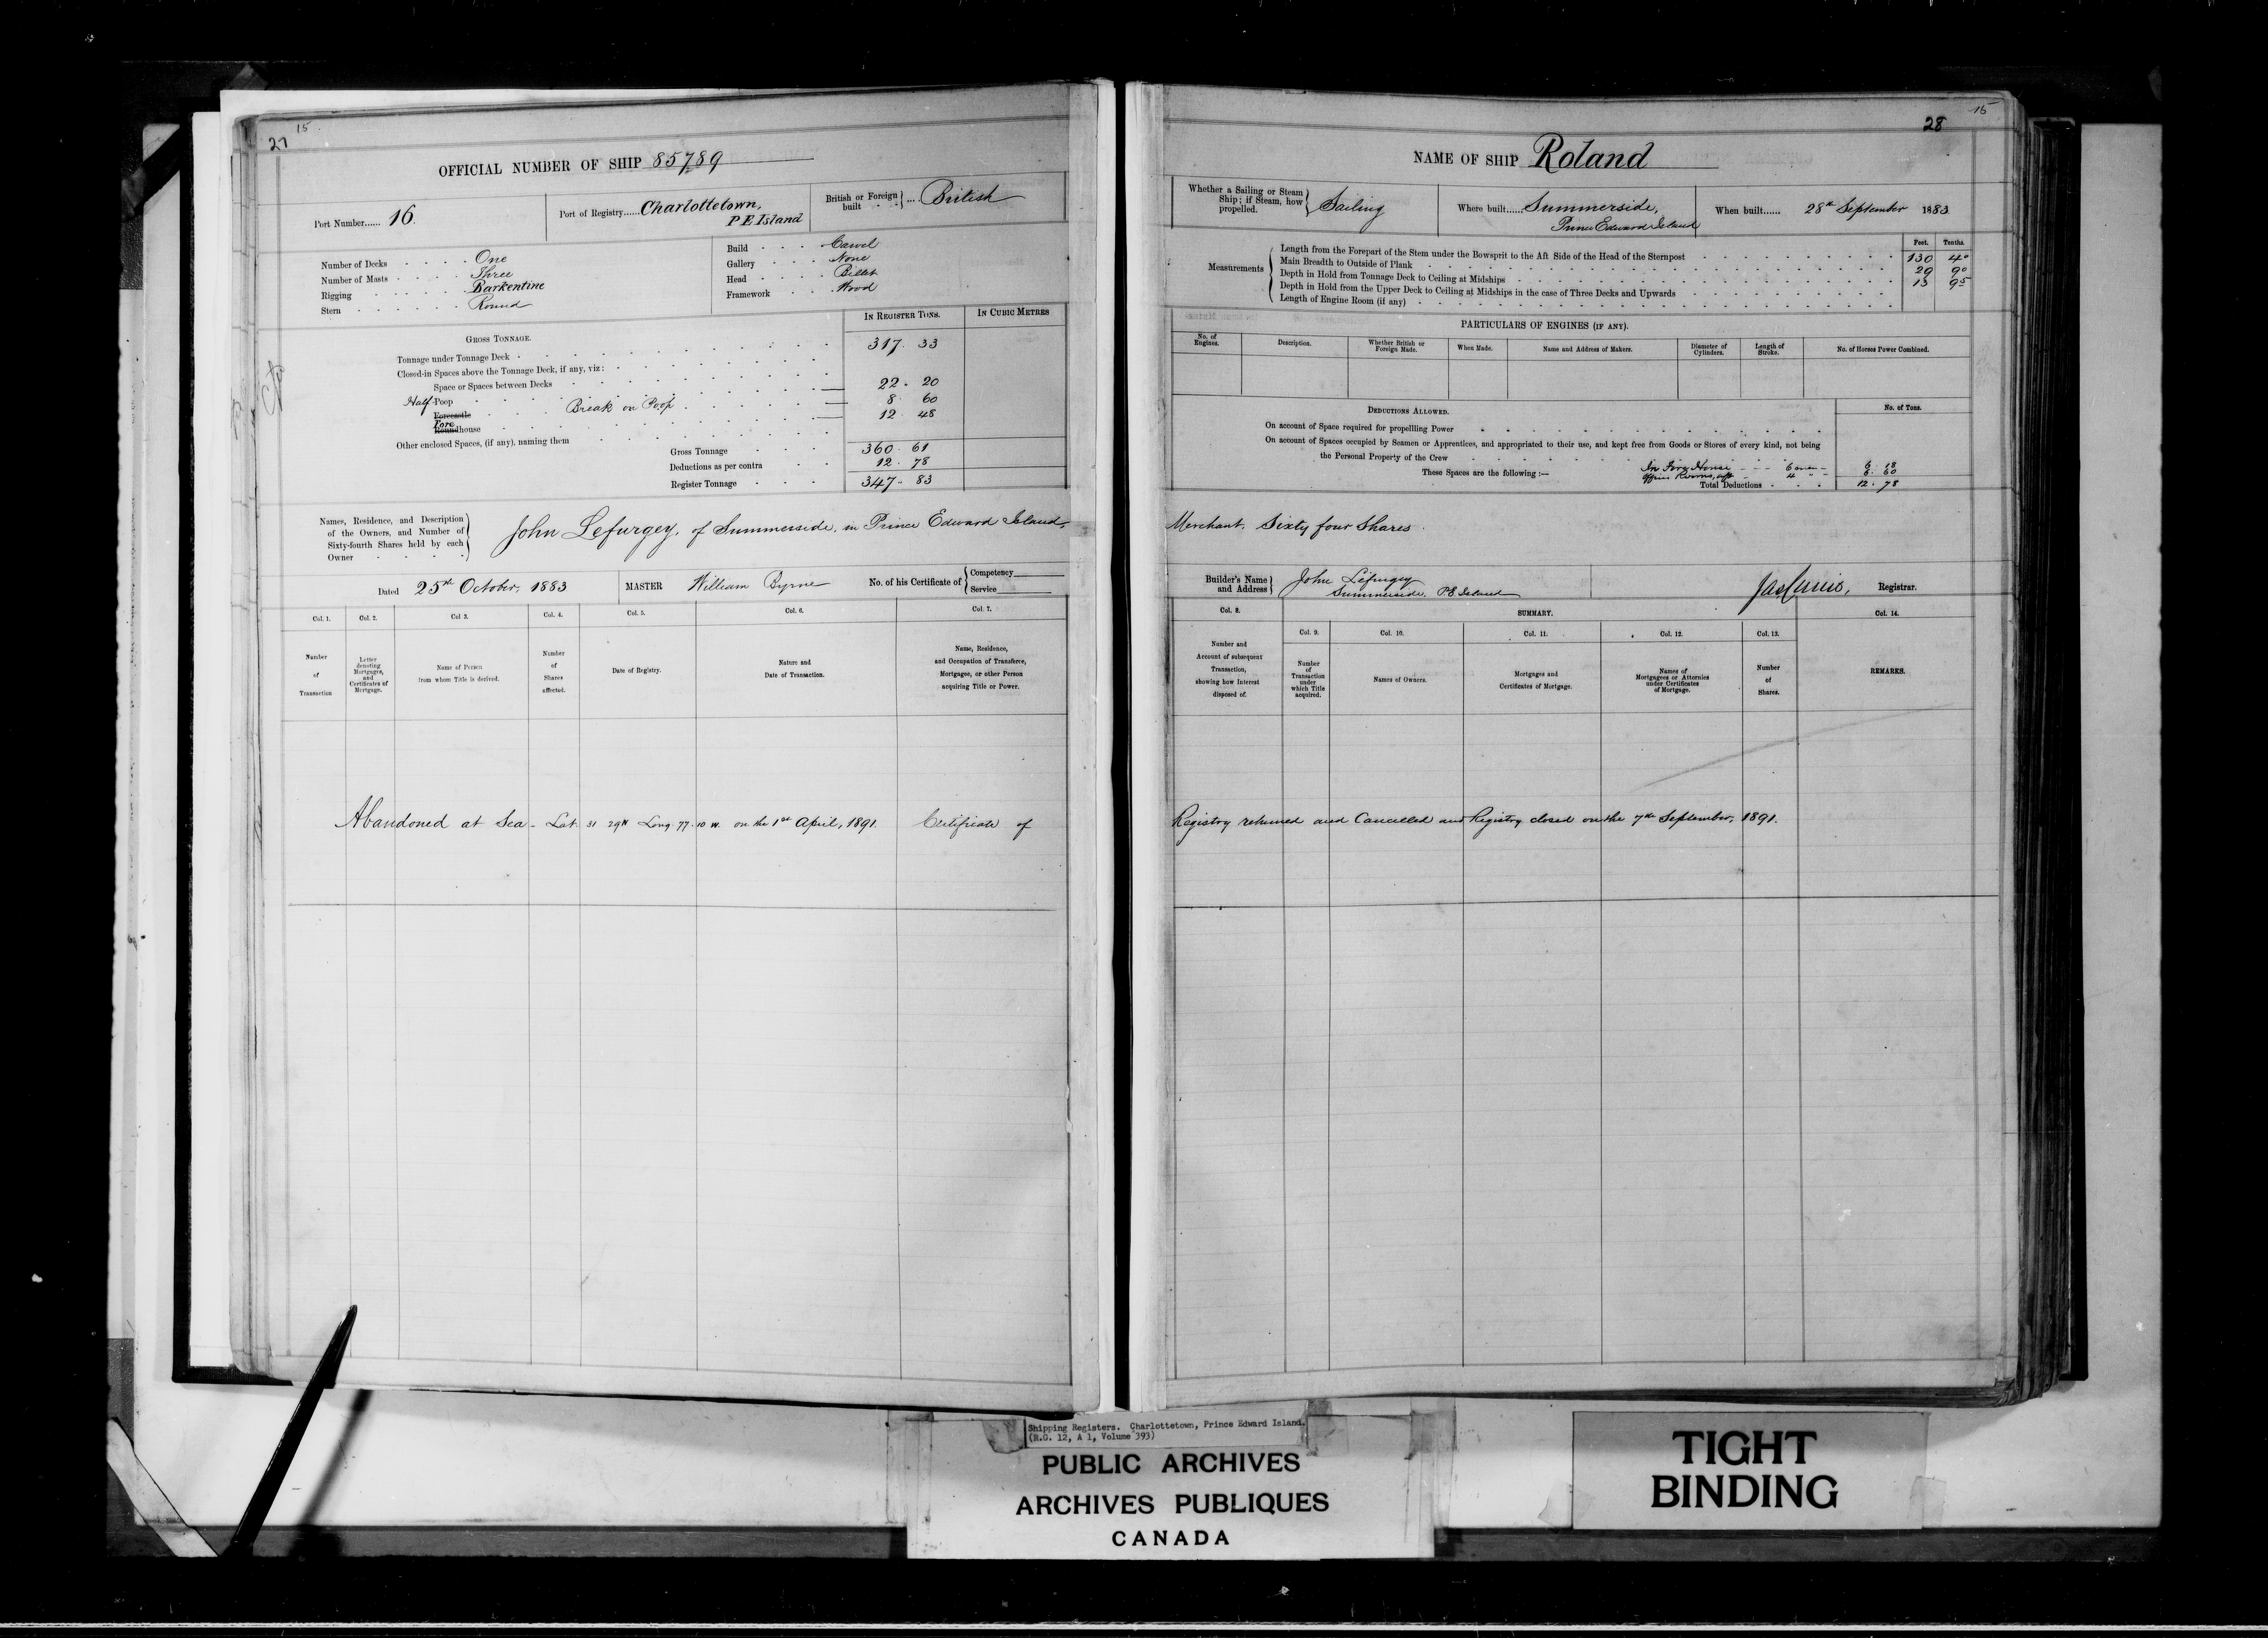 27 15
OFFICIAL NUMBER OF SHIP 85789
Port Number...... 16.
Port of Registry...... Charlottetown,
P E Island
British or Foreign built ... British
Number of Decks One
Number of Masts Three
Rigging Barkentine
Stern Round
Build Carvel
Gallery None
Head Billet
Framework Wood
GROSS TONNAGE. IN REGISTER TONS. IN CUBIC METRES
Tonnage under Tonnage Deck 317. 33
Closed-in Spaces above the Tonnage Deck, if any, viz:
Space or Spaces between Decks
Half-Poop 22. 20
Forecastle Break on Poop 8. 60
Fore Roundhouse 12. 48
Other enclosed Spaces, (if any), naming them
Gross Tonnage 360. 61
Deductions as per contra 12. 78
Register Tonnage 347. 83
Names, Residence, and Description
of the Owners, and Number of
Sixty-fourth Shares held by each
Owner
John Lefurgey, of Summerside, in Prince Edward Island
Dated 25th October, 1883 MASTER William Byrne No. of his Certificate of Competency
Service
Col. 1. Col. 2. Col. 3. Col. 4. Col. 5. Col. 6. Col. 7.
Number of Transaction
Letter denoting Mortgages, and Certificates of Mortgage.
Name of Person from whom Title is derived.
Number of Shares affected.
Date of Registry.
Nature and Date of Transaction.
Name, Residence, and Occupation of Transferee, Mortgagee, or other Person acquiring Title or Power.
Abandoned at Sea - Lat. 31 29 N Long. 77. 10 W. on the 1st April, 1891. Certificate of
28 15
NAME OF SHIP Roland
Whether a Sailing or Steam Ship; if Steam, how propelled. Sailing
Where built...... Summerside,
Prince Edward Island
When built...... 28th September 1883
Measurements Feet. Tenths.
Length from the Forepart of the Stem under the Bowsprit to the Aft Side of the Head of the Sternpost 130 40
Main Breadth to Outside of Plank 29 90
Depth in Hold from Tonnage Deck to Ceiling at Midships 13 95
Depth in Hold from the Upper Deck to Ceiling at Midships in the case of Three Decks and Upwards
Length of Engine Room (if any)
PARTICULARS OF ENGINES (IF ANY).
No. of Engines. Description. Whether British or Foreign Made. When Made. Name and Address of Makers. Diameter of Cylinders. Length of Stroke. No. of Horses Power Combined.
DEDUCTIONS ALLOWED. No. of Tons.
On account of Space required for propelling Power
On account of Spaces occupied by Seamen or Apprentices, and appropriated to their use, and kept free from Goods or Stores of every kind, not being
the Personal Property of the Crew
These Spaces are the following :— In Fore House 6 men 6. 18
Officers Rooms, aft 4 " 6. 60
Total Deductions 12. 78
Merchant. Sixty four Shares.
Builder's Name and Address John Lefurgey
Summerside, P E Island
Registrar.
Col. 8. SUMMARY. Col. 14.
Col. 9. Col. 10. Col. 11. Col. 12. Col. 13.
Number and Account of subsequent Transaction, showing how Interest disposed of.
Number of Transaction under which Title acquired.
Names of Owners.
Mortgages and Certificates of Mortgage.
Names of Mortgagees or Attornies under Certificates of Mortgage.
Number of Shares.
REMARKS.
Registry returned and Cancelled and Registry closed on the 7th September, 1891.
Shipping Registers. Charlottetown, Prince Edward Island.
(R.G. 12, A 1, Volume 393)
PUBLIC ARCHIVES
ARCHIVES PUBLIQUES
CANADA
TIGHT
BINDING